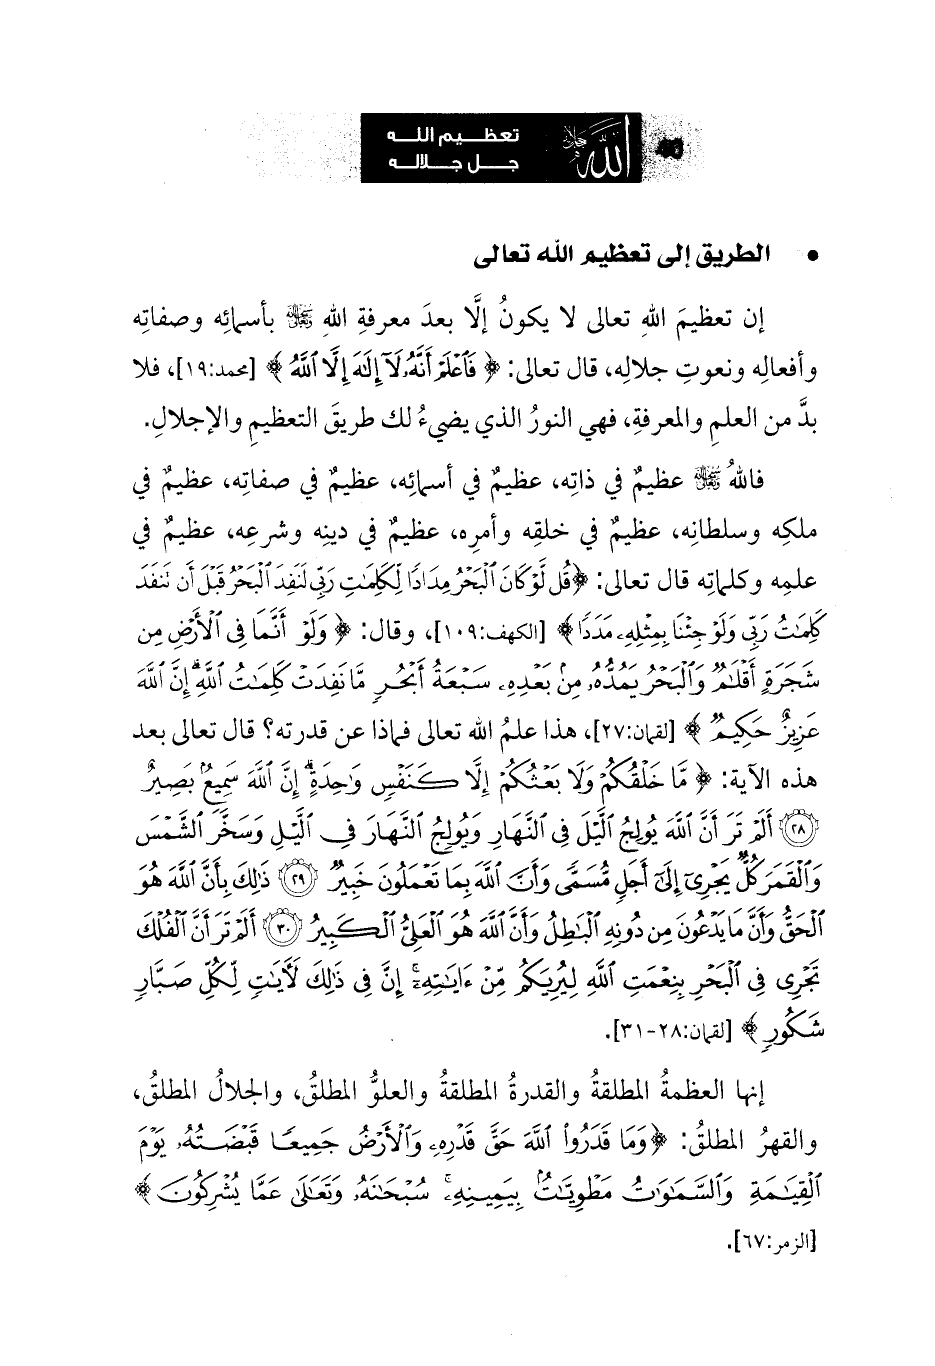 تعظيم الله
جل جلاله
الله جل جلاله
• الطريق إلى تعظيم الله تعالى
إن تعظيمَ اللهِ تعالى لا يكونُ إلَّا بعدَ معرفةِ اللهِ ﷻ بأسمائِه وصفاتِه
وأفعالِه ونعوتِ جلالِه، قال تعالى: ﴿ فَٱعۡلَمۡ أَنَّهُۥ لَآ إِلَٰهَ إِلَّا ٱللَّهُ ﴾ [محمد:١٩]، فلا
بدَّ من العلمِ والمعرفةِ، فهي النورُ الذي يضيءُ لك طريقَ التعظيمِ والإجلالِ.
فاللهُ ﷻ عظيمٌ في ذاتِه، عظيمٌ في أسمائِه، عظيمٌ في صفاتِه، عظيمٌ في
ملكِه وسلطانِه، عظيمٌ في خلقِه وأمرِه، عظيمٌ في دينِه وشرعِه، عظيمٌ في
علمِه وكلماتِه قال تعالى: ﴿قُل لَّوۡ كَانَ ٱلۡبَحۡرُ مِدَادٗا لِّكَلِمَٰتِ رَبِّي لَنَفِدَ ٱلۡبَحۡرُ قَبۡلَ أَن تَنفَدَ
كَلِمَٰتُ رَبِّي وَلَوۡ جِئۡنَا بِمِثۡلِهِۦ مَدَدٗا﴾ [الكهف:١٠٩]، وقال: ﴿ وَلَوۡ أَنَّمَا فِي ٱلۡأَرۡضِ مِن
شَجَرَةٍ أَقۡلَٰمٞ وَٱلۡبَحۡرُ يَمُدُّهُۥ مِنۢ بَعۡدِهِۦ سَبۡعَةُ أَبۡحُرٖ مَّا نَفِدَتۡ كَلِمَٰتُ ٱللَّهِۚ إِنَّ ٱللَّهَ
عَزِيزٌ حَكِيمٞ ﴾ [لقمان:٢٧]، هذا علمُ الله تعالى فماذا عن قدرته؟ قال تعالى بعد
هذه الآية: ﴿ مَّا خَلۡقُكُمۡ وَلَا بَعۡثُكُمۡ إِلَّا كَنَفۡسٖ وَٰحِدَةٍۚ إِنَّ ٱللَّهَ سَمِيعُۢ بَصِيرٌ
٢٨ أَلَمۡ تَرَ أَنَّ ٱللَّهَ يُولِجُ ٱلَّيۡلَ فِي ٱلنَّهَارِ وَيُولِجُ ٱلنَّهَارَ فِي ٱلَّيۡلِ وَسَخَّرَ ٱلشَّمۡسَ
وَٱلۡقَمَرَۖ كُلّٞ يَجۡرِيٓ إِلَىٰٓ أَجَلٖ مُّسَمّٗى وَأَنَّ ٱللَّهَ بِمَا تَعۡمَلُونَ خَبِيرٞ ٢٩ ذَٰلِكَ بِأَنَّ ٱللَّهَ هُوَ
ٱلۡحَقُّ وَأَنَّ مَا يَدۡعُونَ مِن دُونِهِ ٱلۡبَٰطِلُ وَأَنَّ ٱللَّهَ هُوَ ٱلۡعَلِيُّ ٱلۡكَبِيرُ ٣٠ أَلَمۡ تَرَ أَنَّ ٱلۡفُلۡكَ
تَجۡرِي فِي ٱلۡبَحۡرِ بِنِعۡمَتِ ٱللَّهِ لِيُرِيَكُم مِّنۡ ءَايَٰتِهِۦٓۚ إِنَّ فِي ذَٰلِكَ لَأٓيَٰتٖ لِّكُلِّ صَبَّارٖ
شَكُورٖ ﴾ [لقمان:٢٨-٣١].
إنها العظمةُ المطلقةُ والقدرةُ المطلقةُ والعلوُّ المطلقُ، والجلالُ المطلقُ،
والقهرُ المطلقُ: ﴿وَمَا قَدَرُواْ ٱللَّهَ حَقَّ قَدۡرِهِۦ وَٱلۡأَرۡضُ جَمِيعٗا قَبۡضَتُهُۥ يَوۡمَ
ٱلۡقِيَٰمَةِ وَٱلسَّمَٰوَٰتُ مَطۡوِيَّٰتُۢ بِيَمِينِهِۦۚ سُبۡحَٰنَهُۥ وَتَعَٰلَىٰ عَمَّا يُشۡرِكُونَ﴾
[الزمر:٦٧].